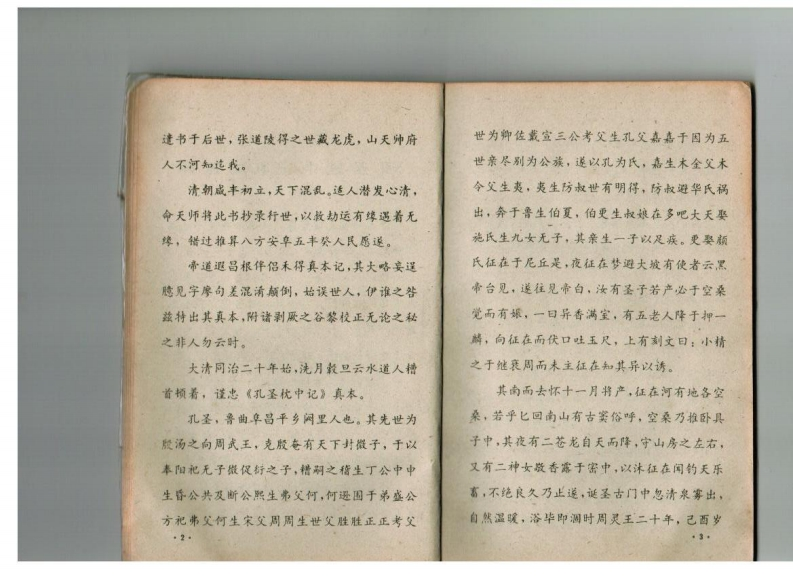 遗书于后世，张道陵得之世藏龙虎，山天师府
人不河知迄我。
清朝咸丰初立，天下混乱。适人潜发心清，
命天师将此书抄录行世，以救劫运有缘遇着无
缘，错过推算八方安阜五丰癸人民愿遂。
帝道遐昌根伴侣未得真本记，其大略妄逞
臆见字摩句差混淆颠倒，始误世人，伊谁之咎
兹特出其真本，附诸剥厥之谷黎校正无论之秘
之非人勿云时。
大清同治二十年始，洗月榖旦云水道人糟
首顿着，谨忠《孔圣枕中记》真本。
孔圣，鲁曲阜昌平乡阙里人也。其先世为
殷汤之向周武王，克殷奄有天下封微子，于以
奉阳祀无子微促衍之子，糟嗣之稽生丁公中中
生昏公共及断公熙生弗父何，何逊囿于弟盛公
方祀弗父何生宋父周周生世父胜胜正正考父
·2·
世为卿佐戴宣三公考父生孔父嘉嘉于因为五
世亲尽别为公族，遂以孔为氏，嘉生木金父木
令父生夷，夷生防叔世有明得，防叔避华氏祸
出，奔于鲁生伯夏，伯更生叔娘在多吧大天娶
施氏生九女无子，其亲生一子以足疾。更娶颜
氏征在于尼丘是，夜征在梦避大坡有使者云黑
帝台见，遂往见帝白，汝有圣子若产必于空桑
觉而有娠，一日异香满室，有五老人降于押一
麟，向征在而伏口吐玉尺，上有刻文曰：小精
之于继衰周而未主征在知其异以诱。
其南而去怀十一月将产，征在河有地各空
桑，若乎匕回南山有古窦俗呼，空桑乃推卧具
子中，其夜有二苍龙自天而降，守山房之左右，
又有二神女敬香露于密中，以沐征在闻钓天乐
畜，不绝良久乃止遂，诞圣古门中忽清泉雾出，
自然温暖，浴毕即涸时周灵王二十年，己酉岁
·3·